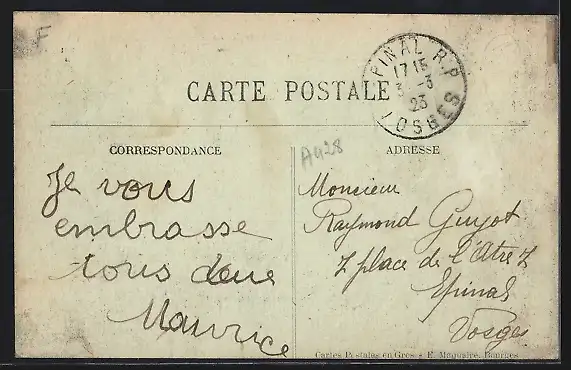 F
EPINAL R.P
17 15
3 -3
23
VOSGES
CARTE POSTALE
A428
CORRESPONDANCE
ADRESSE
Je vous
embrasse
tous deux
Maurice
Monsieur
Raymond Guyot
7 place de l'Atre 7
Epinal
Vosges
Cartes Postales en Gros - E. Maquaire, Bourges